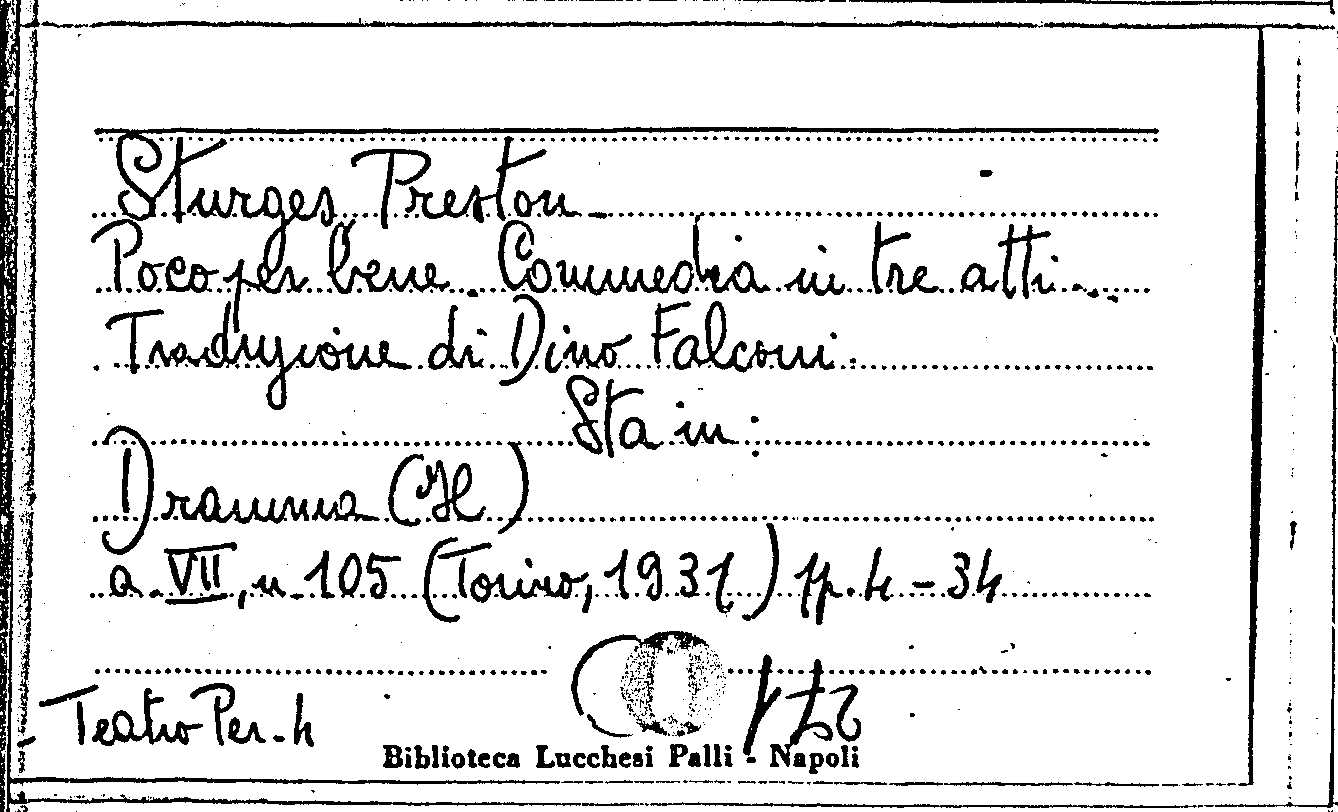 Sturges Preston
Poco per bene. Commedia in tre atti.
Traduzione di Dino Falconi.
Sta in:
Dramma (Il)
a. VII, n. 105 (Torino, 1931) pp. 4 - 34
Teatro Per. 4
Biblioteca Lucchesi Palli - Napoli